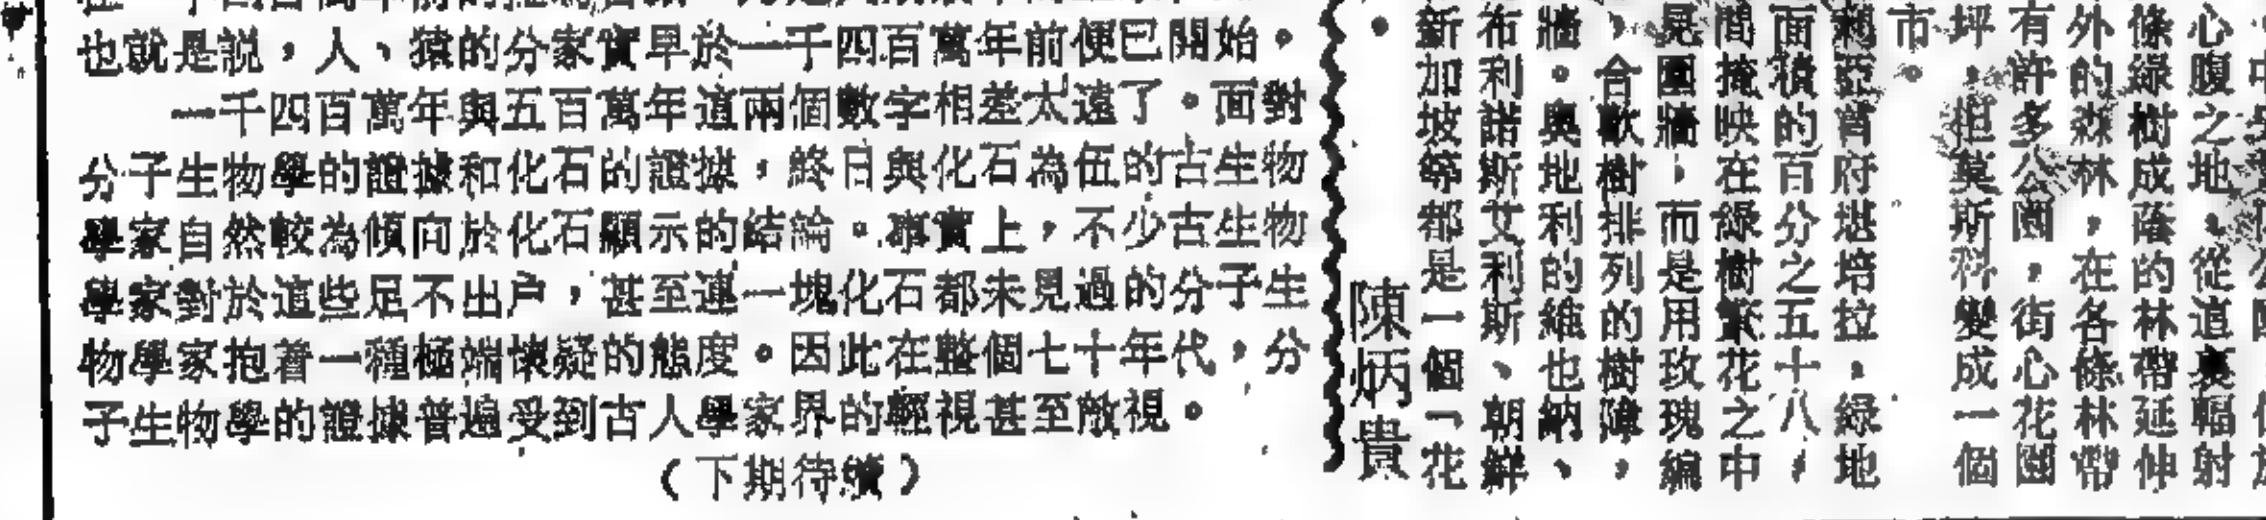 也就是説，人、猿的分家實早於一千四百萬年前便已開始。
一千四百萬年與五百萬年這兩個數字相差太遠了。面對
分子生物學的證據和化石的證據，終日與化石為伍的古生物
學家自然較為傾向於化石顯示的結論。事實上，不少古生物
學家對於這些足不出户，甚至連一塊化石都未見過的分子生
物學家抱着一種極端懷疑的態度。因此在整個七十年代，分
子生物學的證據普遍受到古人學家界的輕視甚至敵視。
（下期待續）
心腹之地。從這裏輻射
條綠樹成蔭的林帶延伸
外的森林，在各條林帶
有許多公園，街心花園
坪，把莫斯科變成一個
市。
利亞首府堪培拉，綠地
面積的百分之五十八，
間掩映在綠樹繁花之中
是圍牆，而是用玫瑰編
，合歡樹排列的樹障，
牆。奧地利的維也納、
布利諾斯艾利斯、朝鮮
新加坡等都是一個「花
。
陳炳貴